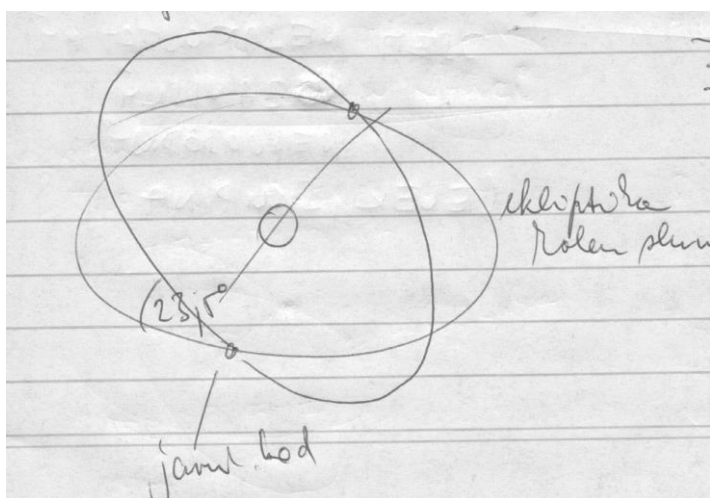 ekliptika
kolem slun
(23,5°
jarní bod